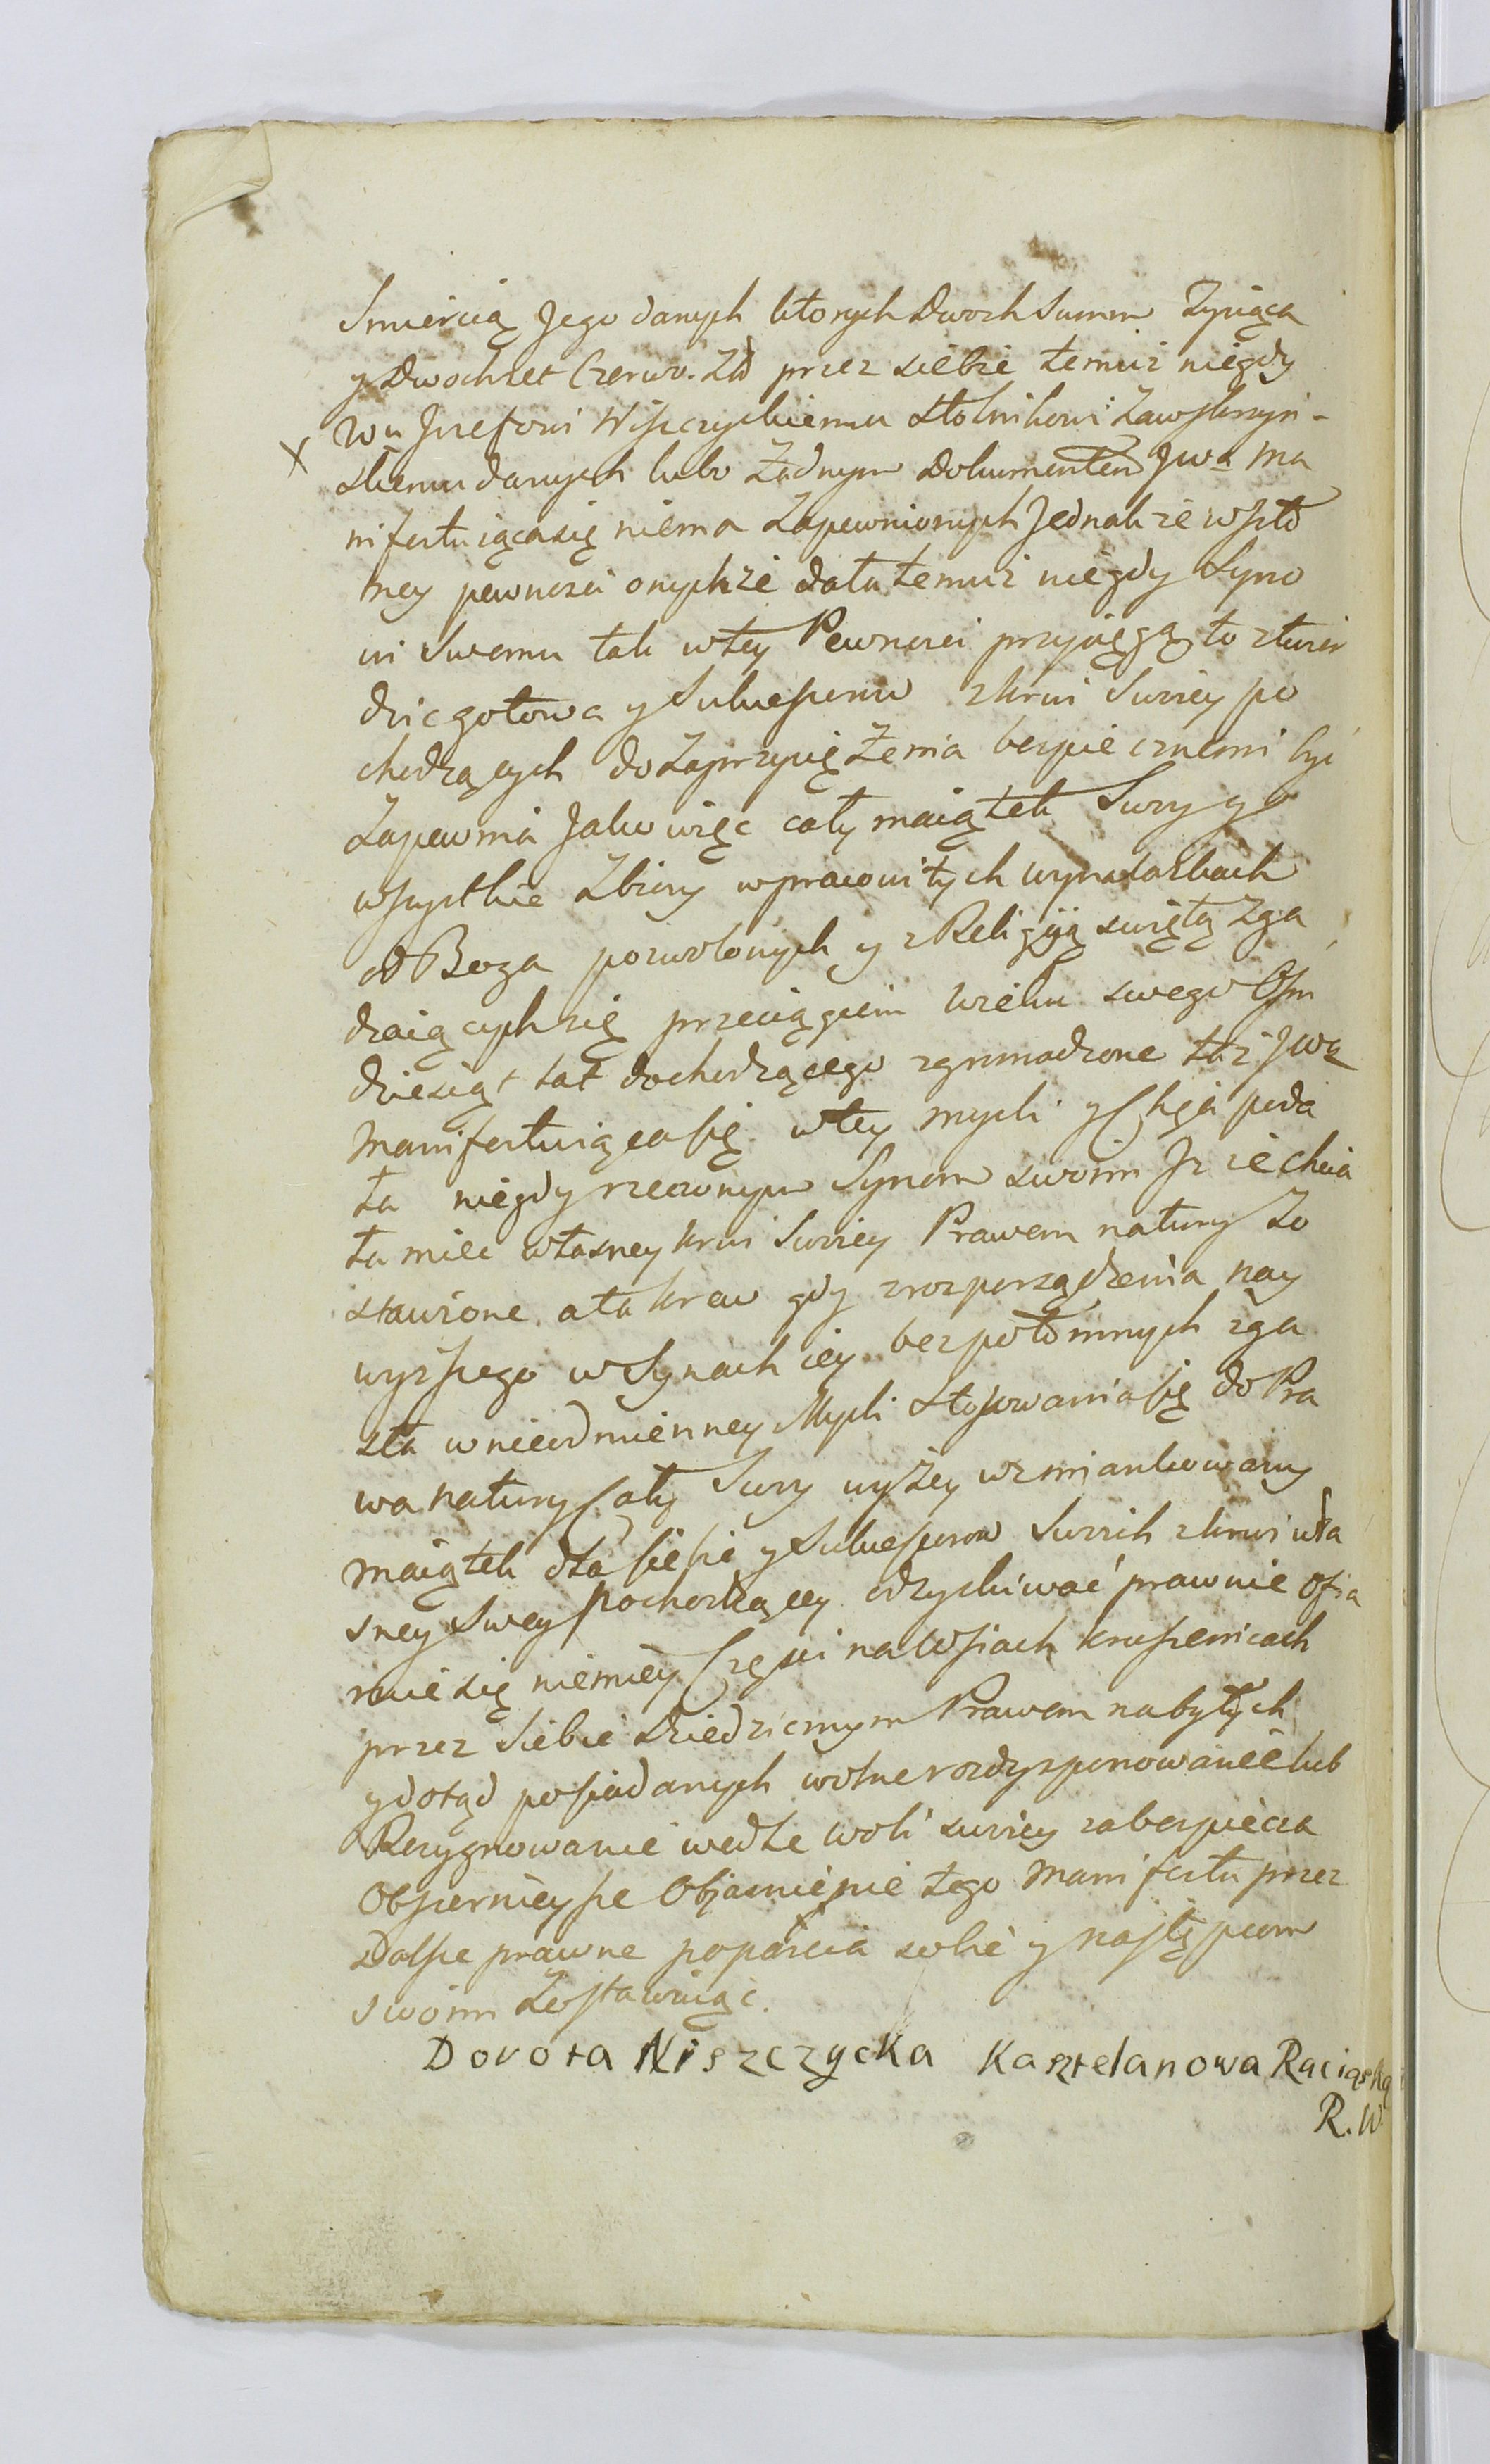 Smiercią Jego danych ktorych Dwoch Summ Tysiąca
y Dwochset Czerw. Złł przez siebie temuż niegdy
Wu Jozefowi Niszczyckiemu Stolnikowi Zawskrzyn-
x skiemu danych lubo Żadnym Dokumentem Jwa Ma
nifestuiącasię niema Zapewnionych Jednakże w isto
tney pewnosci onychże data temuż niegdy Syno
wi Swemu tak w tey Pewnosci przysięgą to ztwier
dzic gotowa y Sukcesorow z krwi Swoiey po
chodzących do Zaprzysiężenia bespiecznemi być
Zapewnia Jako więc cały maiątek Swoy y
wszystkie Zbiory w pracowitych wynaskach
od Boga pozwolonych y z Religiją swiętą Zga
dzaiących się przeciągiem wieku swego Osm
dziesiąt lat dochodzącego zgromadzone taż Jwa
Manifestuiąca się w tey mysli y Chęci poda
ła niegdy rzeczonym Synom swoim Jż ie chcia
ła miec własney krwi Swoiey Prawem natury Zo
stawione. a ta krew gdy z rozporządzenia nay
wyzszego w Synach iey bezpotomnych zga
sła w nieodmienney Mysli stosowania się do Pra
wa natury Cały Swoy wyżey wzmiankowany
maiątek dla siebie y Sukcesorow Swoich z krwi wła
sney Swey pochodzącey odzyskiwać prawnie ofia
ruie się niemniey Częsci na Wsiach Krusenicach
przez siebie dziedzicznym Prawem nabytych
y dotąd posiadanych wolne rozdysponowanie lub
Rezygnowanie wedle woli swoiey zabespiecza
Obszernieysze Objasnienie tego Manifestu przez
Dalsze prawne poparcia sobie y następcom
swoim Zostawuiąc.
Dorota Niszczycka Kasztelanowa Raciąska
R. W.